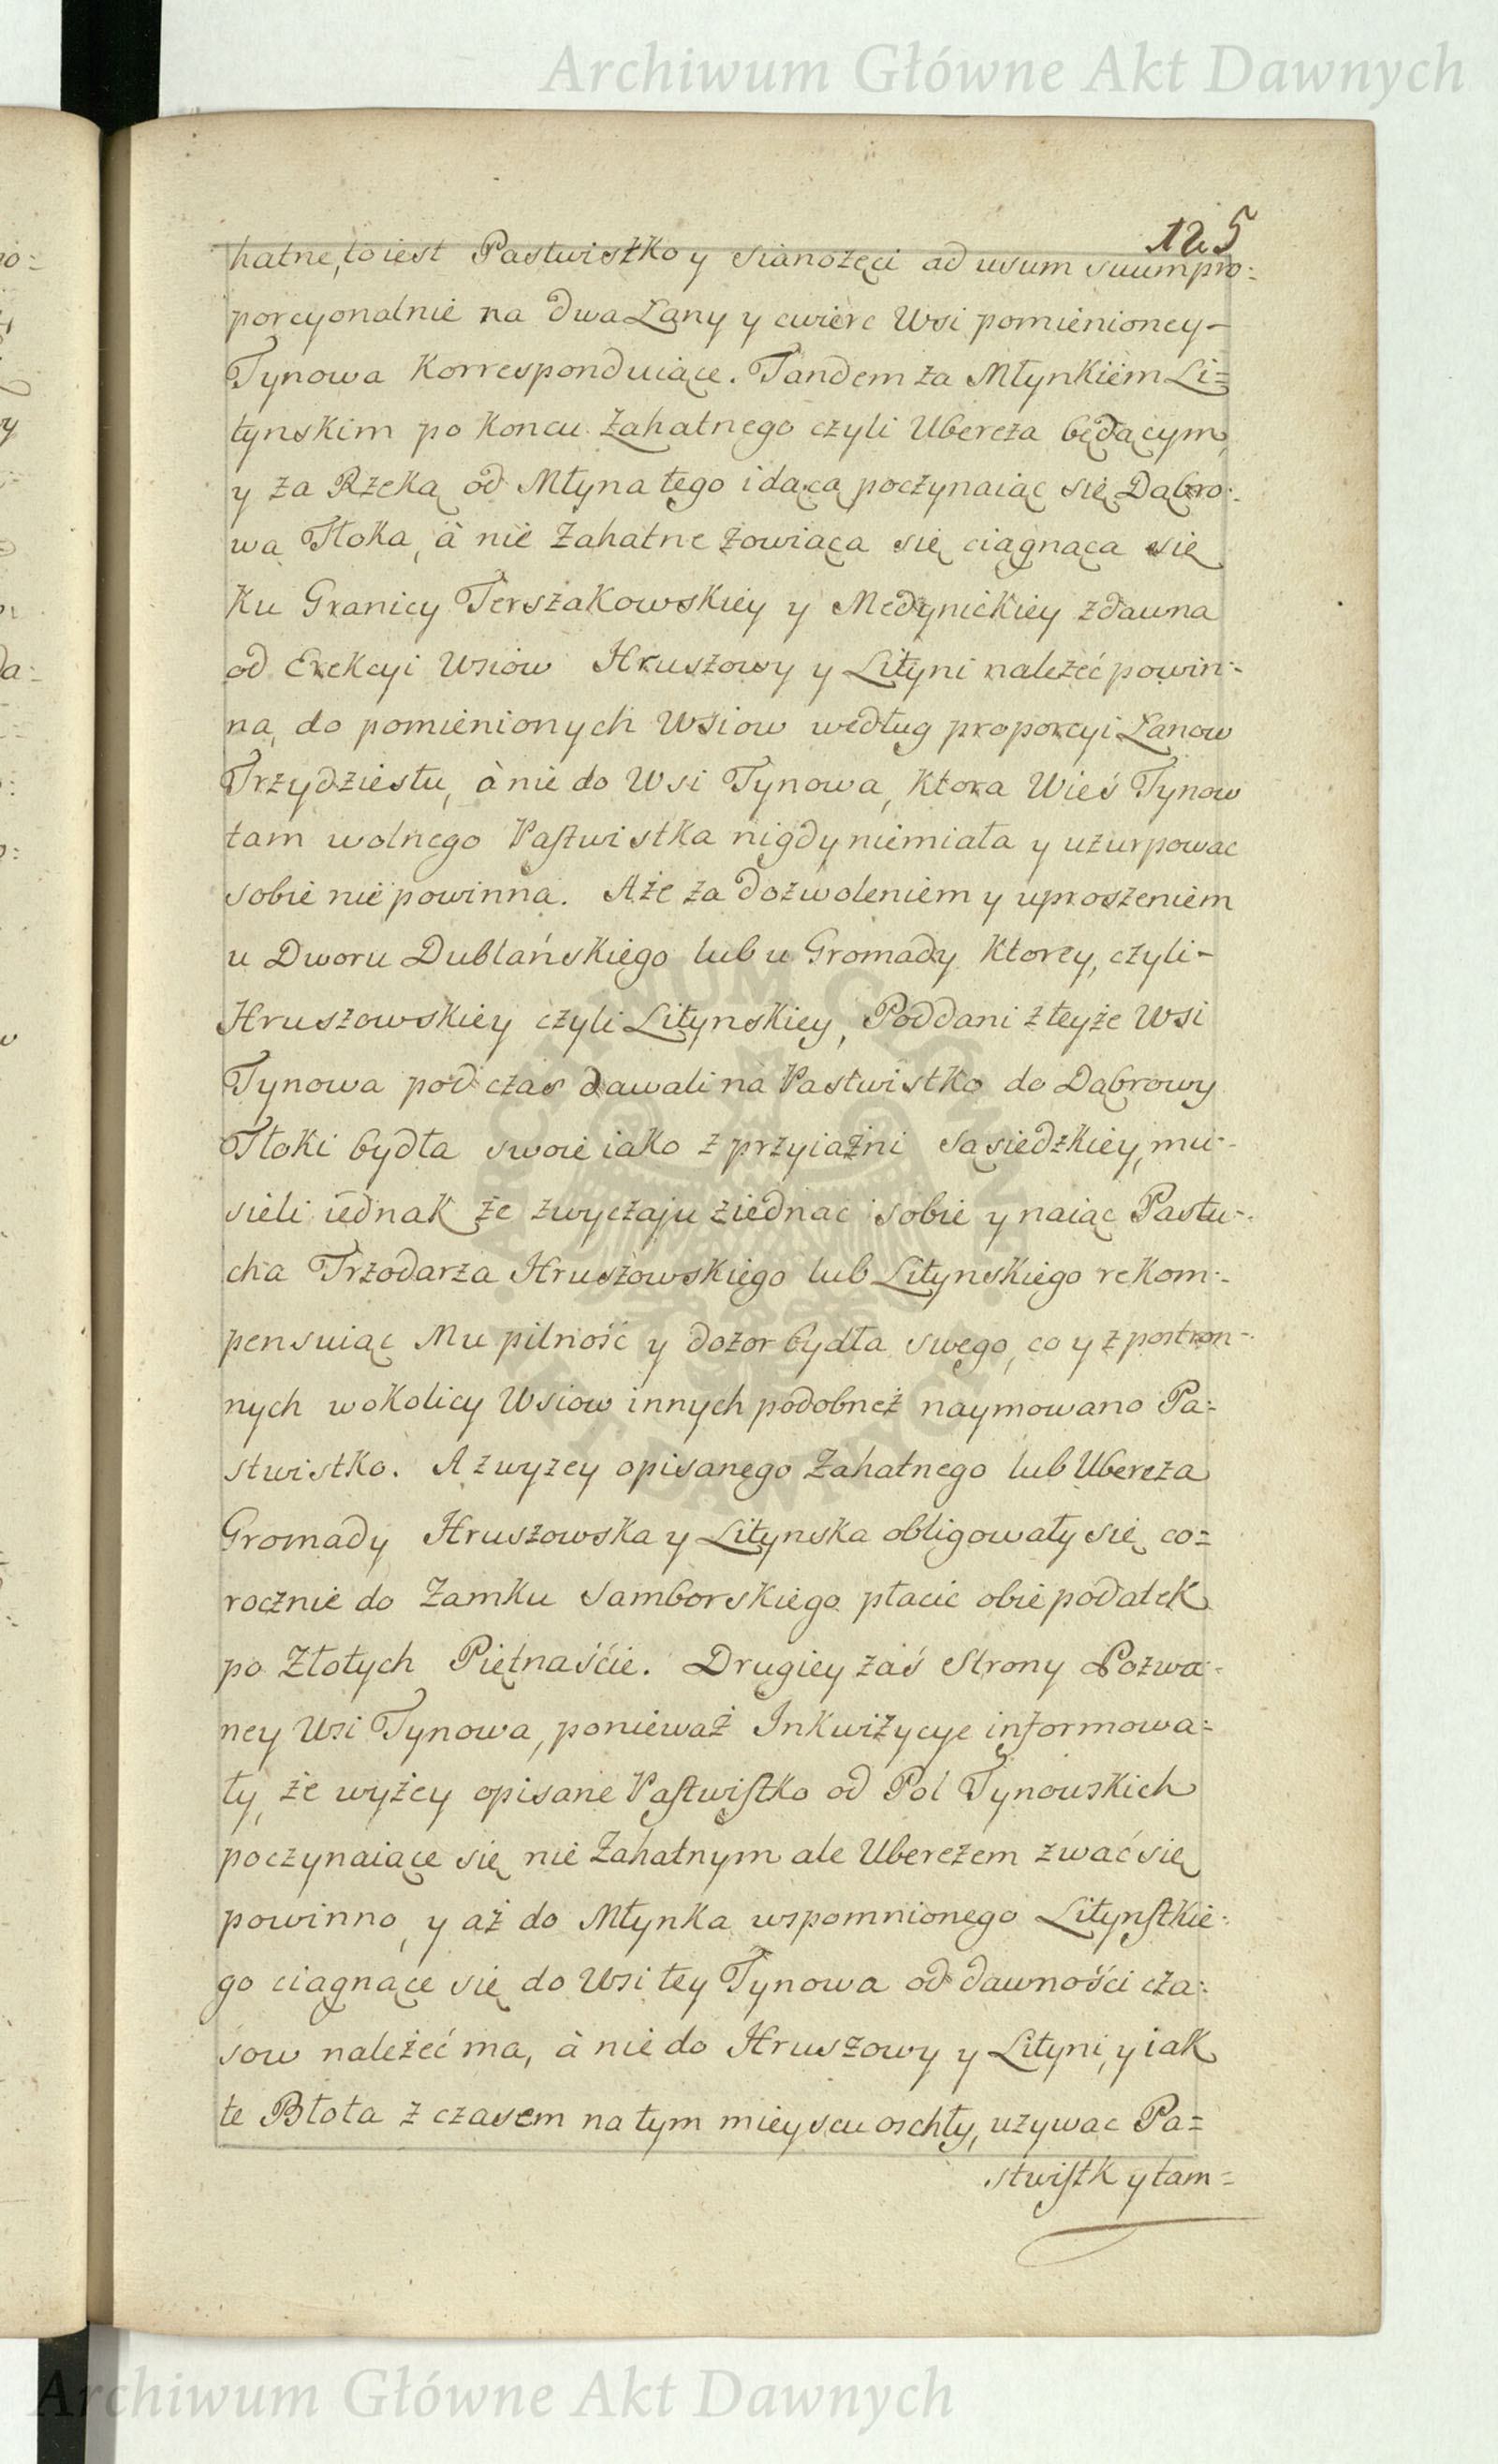 Archiwum Główne Akt Dawnych
125
hatne, to iest Pastwistko y sianożęci ad usum suum pro:
porcyonalnie na dwa Łany y cwierc Wsi pomienioney-
Tynowa Korrespondviące. Tandem za Młynkiem Li=
tynskim po Koncu Zahatnego czyli Ubereża będącym,
y za Rzeką od Młyna tego idącą poczynaiąc się Dąbro:
wa Tłoka, à nie Zahatne zowiąca się ciągnąca się
Ku Granicy Terszakowskiey y Medynickiey zdawna
od Erekcyi Wsiow Hruszowy y Lityni należeć powin:
na, do pomienionych Wsiow według proporcyi Łanow
Trzydziestu, à nie do Wsi Tynowa, Ktora Wieś Tynow
tam wolnego Pastwistka nigdy niemiała y uzurpowac
sobie nie powinna. Aże za dozwoleniem y uproszeniem
u Dworu Dublańskiego lub u Gromady Ktorey, czyli-
Hruszowskiey czyli Litynskiey, Poddani z teyże Wsi
Tynowa pod czas dawali na Pastwistko do Dąbrowy
Tłoki bydła swoie iako z przyiaźni sąsiedzkiey, mu:
sieli iednak że zwyczaju ziednac sobie y naiąc Pastu:
cha Trzodarza Hruszowskiego lub Litynskiego rekom:
pensuiąc Mu pilność y dozor bydła swego, co y z postron:
nych w okolicy Wsiow innych podobneż naymowano Pa:
stwistko. A z wyzey opisanego Zahatnego lub Ubereza
Gromady Hruszowska y Litynska obligowały się co=
rocznie do Zamku Samborskiego płacic obie podatek
po Złotych Piętnaście. Drugiey zaś Strony Pozwa:
ney Wsi Tynowa, ponieważ Inkwizycye informowa=
ły, że wyżey opisane Pastwistko od Pol Tynowskich
poczynaiące się nie Zahatnym ale Ubereżem zwać się
powinno, y aż do Młynka wspomnionego Litynstkie:
go ciągnące się do Wsi tey Tynowa od dawności cza:
sow należeć ma, à nie do Hruszowy y Lityni, y iak
te Błota z czasem na tym mieyscu oschły, uzywac Pa=
stwistk y tam=
Archiwum Główne Akt Dawnych